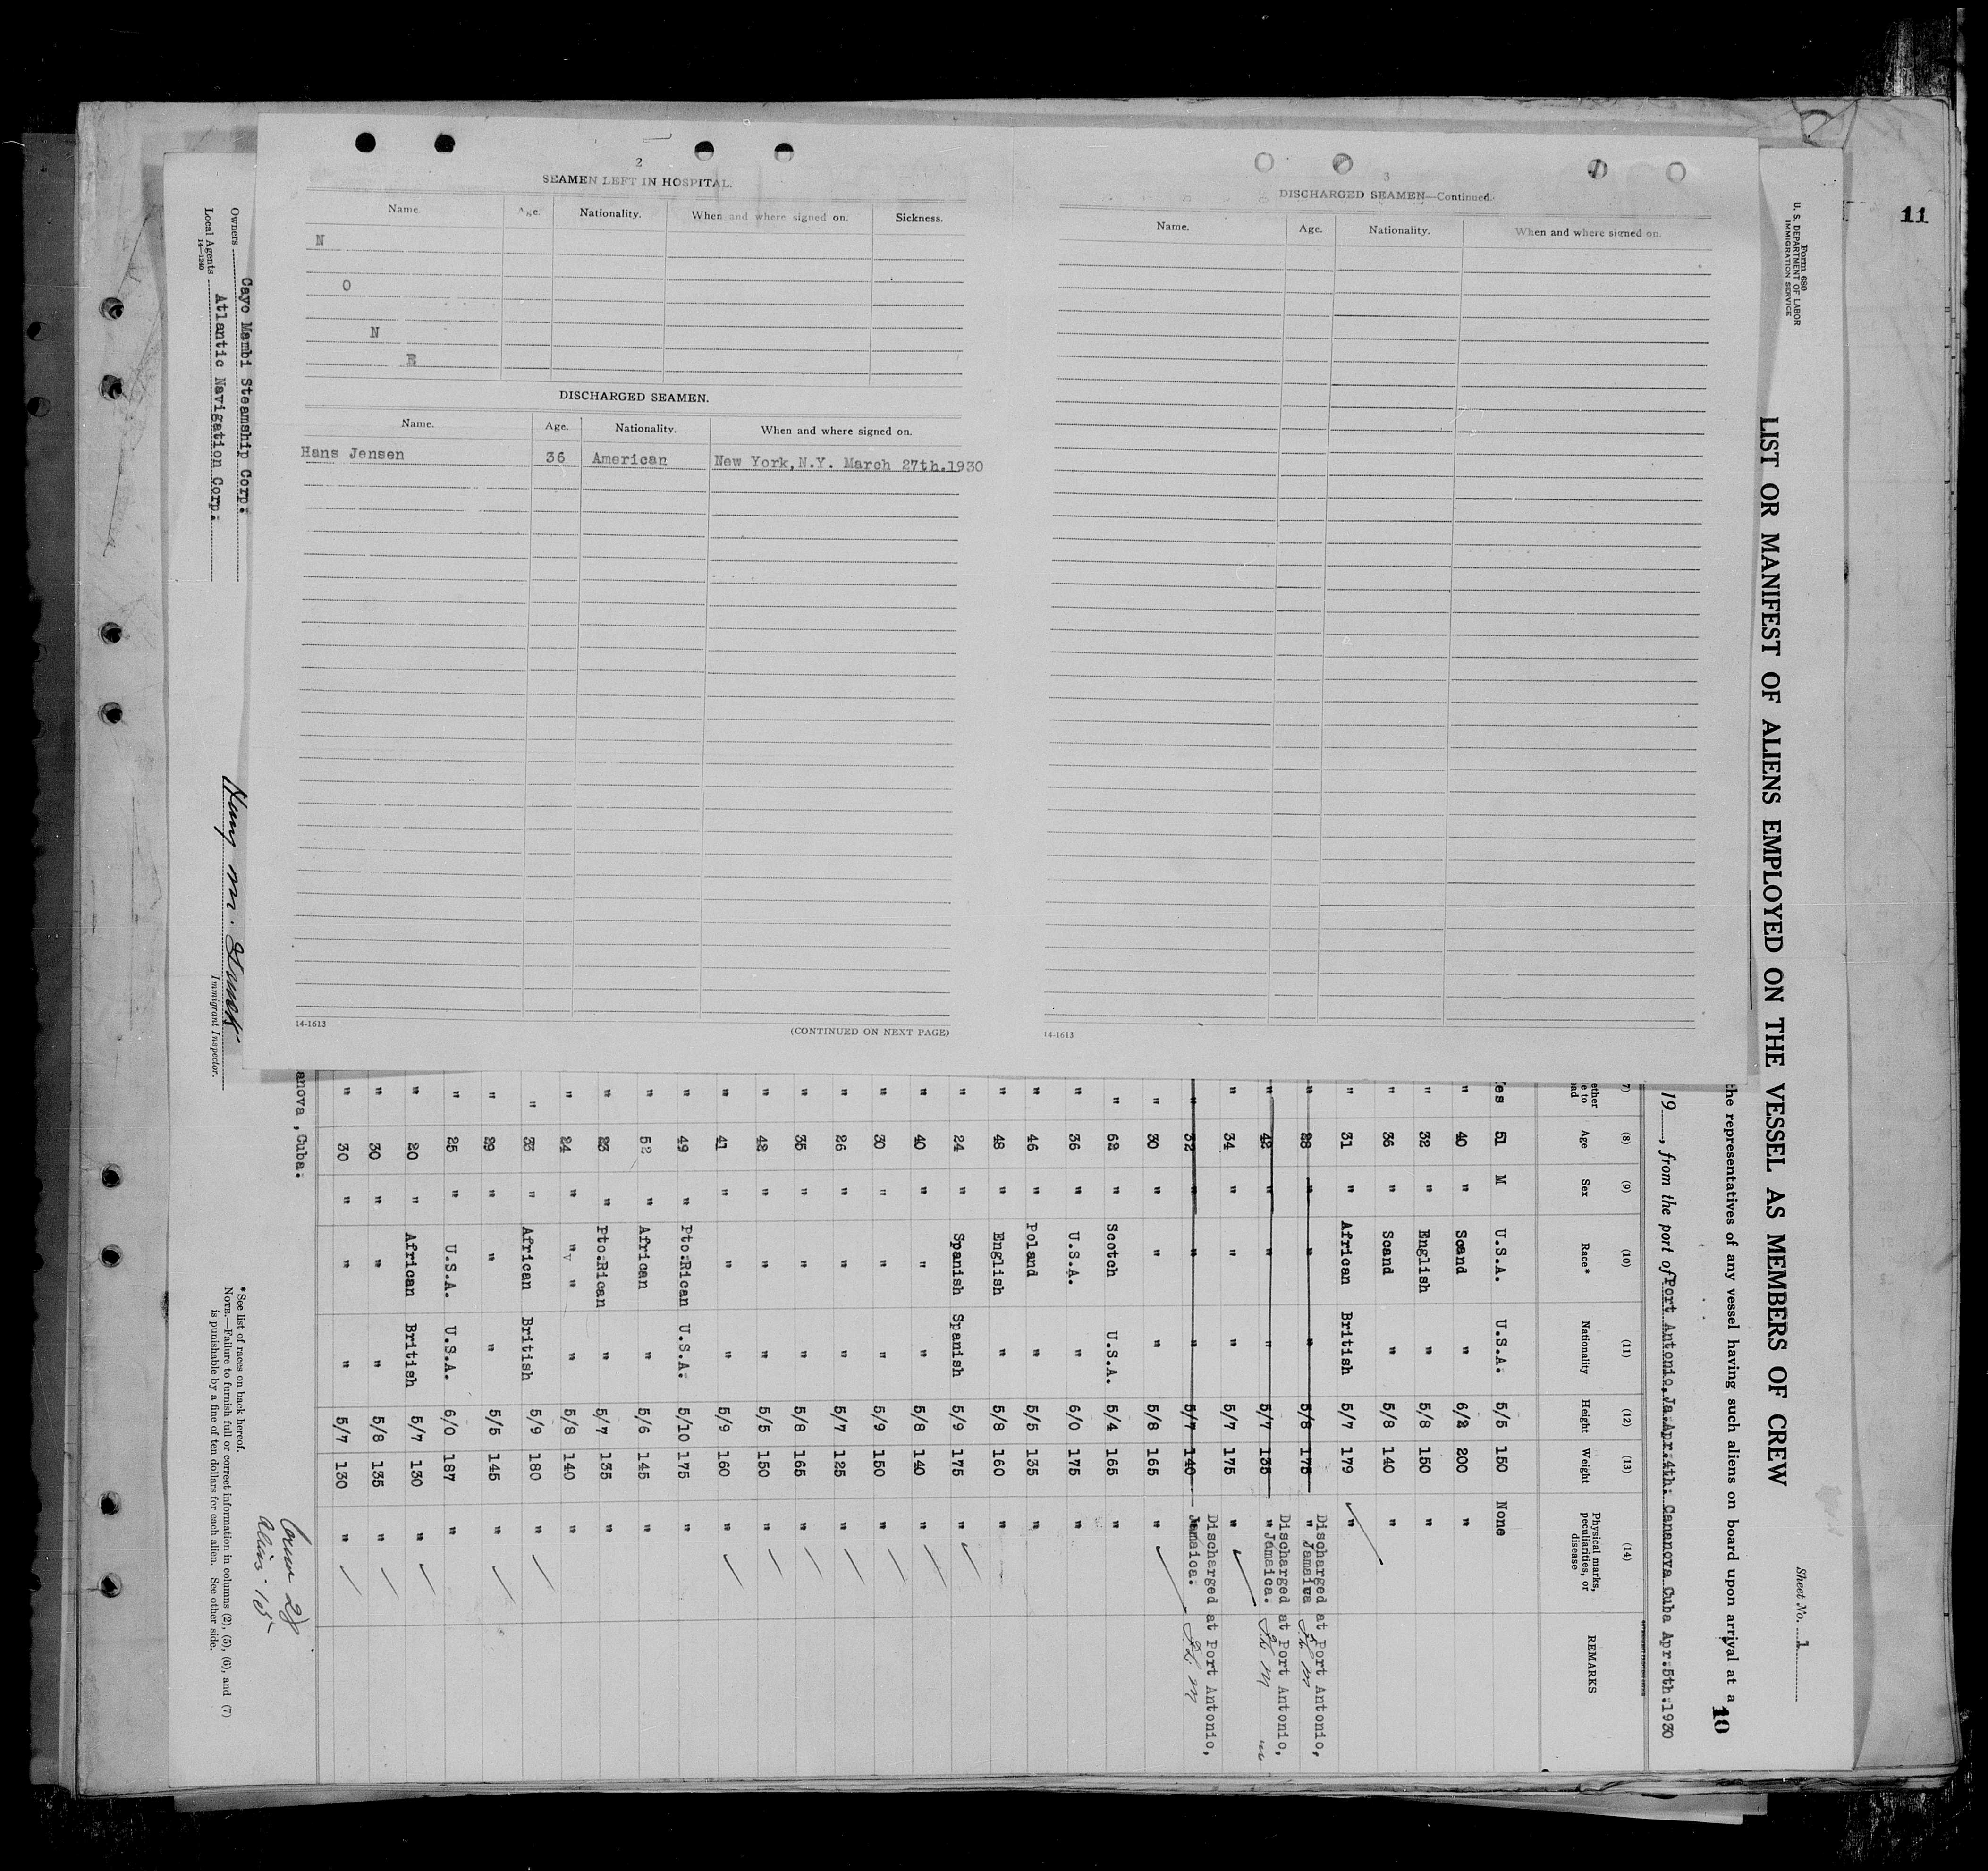 11
2
SEAMEN LEFT IN HOSPITAL.
Name. Age. Nationality. When and where signed on. Sickness.
N
O
N
E
DISCHARGED SEAMEN.
Name. Age. Nationality. When and where signed on.
Hans Jensen 36 American New York,N.Y. March 27th.1930
14-1613
(CONTINUED ON NEXT PAGE)
3
DISCHARGED SEAMEN—Continued.
Name. Age. Nationality. When and where signed on.
14-1613
Form 680
U. S. DEPARTMENT OF LABOR
IMMIGRATION SERVICE
Sheet No. 1
LIST OR MANIFEST OF ALIENS EMPLOYED ON THE VESSEL AS MEMBERS OF CREW
10
the representatives of any vessel having such aliens on board upon arrival at a
19 , from the port of Port Antonio,Ja.Apr.4th. Cananova Cuba Apr.5th.1930
(8) (9) (10) (11) (12) (13) (14)
Age Sex Race* Nationality Height Weight Physical marks, peculiarities, or disease REMARKS
es 51 M U.S.A. U.S.A. 5/5 150 None
" 40 " Scand " 6/2 200 "
" 32 " English " 5/8 150 "
" 36 " Scand " 5/8 140 "
" 31 " African British 5/7 179 "
" 28 " " " 5/8 175 " Discharged at Port Antonio, Jamaica
" 42 " " " 5/7 135 " Discharged at Port Antonio, Jamaica.
" 34 " " " 5/7 175 "
" 32 " " " 5/7 140 " Discharged at Port Antonio, Jamaica.
" 30 " " " 5/8 165 "
" 62 " Scotch U.S.A. 5/4 165 "
" 36 " U.S.A. " 6/0 175 "
" 46 " Poland " 5/5 135 "
" 48 " English " 5/8 160 "
" 24 " Spanish Spanish 5/9 175 "
" 40 " " " 5/8 140 "
" 30 " " " 5/9 150 "
" 26 " " " 5/7 125 "
" 35 " " " 5/8 165 "
" 42 " " " 5/5 150 "
" 41 " " " 5/9 160 "
" 49 " Pto.Rican U.S.A. 5/10 175 "
" 52 " African " 5/6 145 "
" 23 " Pto.Rican " 5/7 135 "
" 24 " " " " 5/8 140 "
" 33 " African British 5/9 180 "
" 29 " " " 5/5 145 "
" 25 " U.S.A. U.S.A. 6/0 187 "
" 20 " African British 5/7 130 "
" 30 " " " 5/8 135 "
" 30 " " " 5/7 130 "
anova ,Cuba.
Owners Cayo Mambi Steamship Corp.
Local Agents Atlantic Navigation Corp.
14-1240
Immigrant Inspector.
*See list of races on back hereof.
NOTE.—Failure to furnish full or correct information in columns (2), (5), (6), and (7)
is punishable by a fine of ten dollars for each alien. See other side.